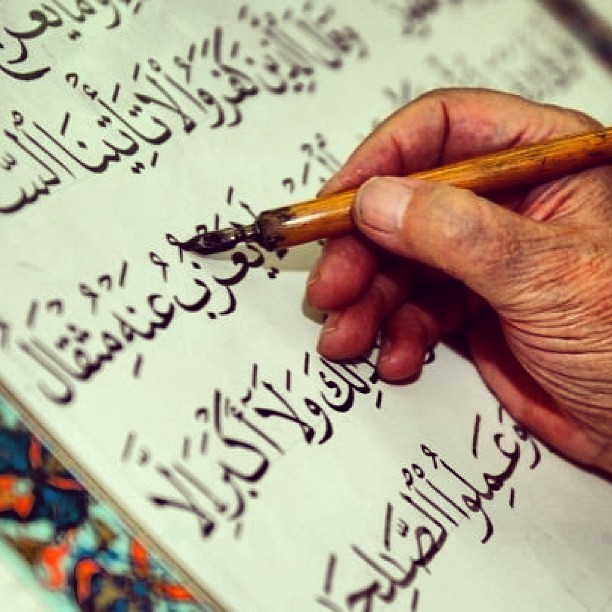 وَمَا يَعْرُجُ
وَقَالَ الَّذِينَ كَفَرُوا لَا تَأْتِينَا السَّ
يَعْزُبُ عَنْهُ مِثْقَالُ
ذَٰلِكَ وَلَا أَكْبَرُ إِلَّا
وَعَمِلُوا الصَّالِحَا